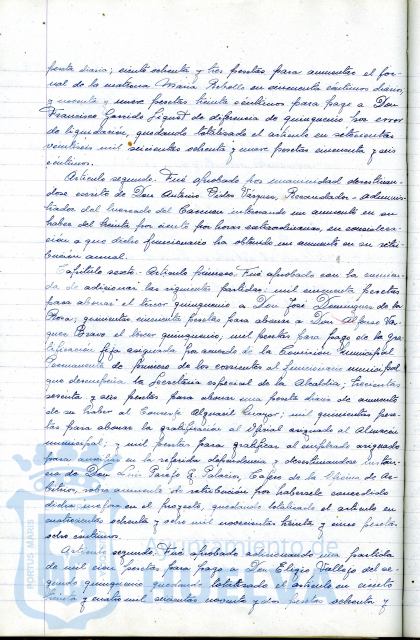 peseta diaria; ciento ochenta y tres pesetas para aumentar el jor-
nal de la matrona María Rebollo en cincuenta céntimos diarios,
y noventa y nueve pesetas treinta céntimos para pago a Don
Francisco Garrido Seguet de diferencia de quinquenio por error
de liquidación, quedando totalizado el artículo en setecientas
veintiseis mil seiscientas ochenta y nueve pesetas cincuenta y seis
céntimos.
Artículo segundo. Fué aprobado por unanimidad desestiman-
dose escrito de Don Antonio Vázquez, Recaudador-adminis-
trador del Mercado del Carmen interesando un aumento en su
haber del treinta por ciento por horas extraordinarias, en considera-
ción a que dicho funcionario ha obtenido un aumento en su retri-
bución anual.
Capítulo sexto. Artículo primero: Fué aprobado con la enmien-
da de adicionar las siguientes partidas: mil cincuenta pesetas
para abonar el tercer quinquenio a Don José Dominguez de la
Rosa; quinientas cincuenta pesetas para abonar a Don Alfonso Vaz-
quez Bravo el tercer quinquenio, mil pesetas para pago de la gra-
tificación fija asignada por acuerdo de la Comisión Municipal
Permanente de primero de los corrientes al funcionario municipal
que desempeña la Secretaria especial de la Alcaldia; trescientas
sesenta y seis pesetas para abonar una peseta diaria de aumento
de su haber al Conserje Alguacil; mil quinientas pese-
tas para abonar la gratificación al Oficial asignado al Almacen
municipal; y mil pesetas para gratificar al empleado asignado
para en la referida dependencia y desestimandose instan-
cia de Don Luis Parejo G. Palacios, Cajero de la Oficina de Ar-
bitrios, sobre aumento de retribución por habersele concedido
dicha mejora en el proyecto, quedando totalizado el artículo en
cuatrocientas ochenta y seis mil novecientas treinta y cinco pesetas
ocho céntimos.
Artículo segundo. Fué aprobado adicionando una partida
de mil cien pesetas para pago a Don Eligio Vallejo del se-
gundo quinquenio quedando totalizado el artículo en ciento
treinta y cuatro mil seiscientas noventa y dos pesetas ochenta y
Ayuntamiento de
HUELVA
PORTUS MARIS